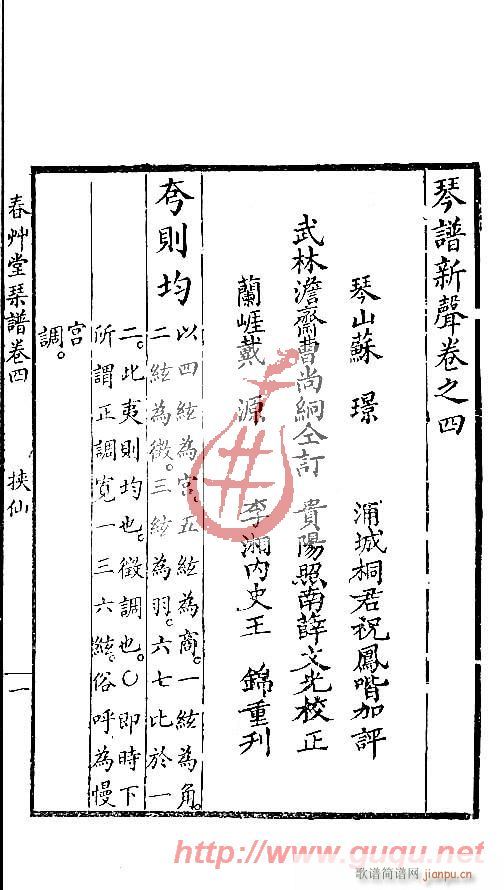 琴譜新聲卷之四
琴山蘇 璟 浦城桐君祝鳳喈加評
武林澹齋曹尚絅仝訂 貴陽照南薛文光校正
蘭崕戴 源 李湘內史王 錦重刋
夸則均 以四絃為宮。五絃為商。一絃為角。
二絃為徵。三絃為羽。六七比於一
二。此夷則均也。徵調也。〇即時下
所謂正調寬一三六絃。俗呼為慢
宮
調。
春艸堂琹譜卷四 挾仙 一
http://www.guqu.net
歌谱简谱网
jianpu.cn